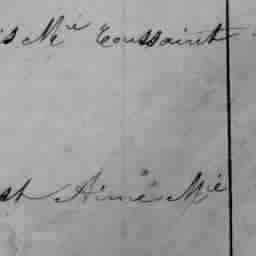 is Mie Toussaint
st Aimé Mie